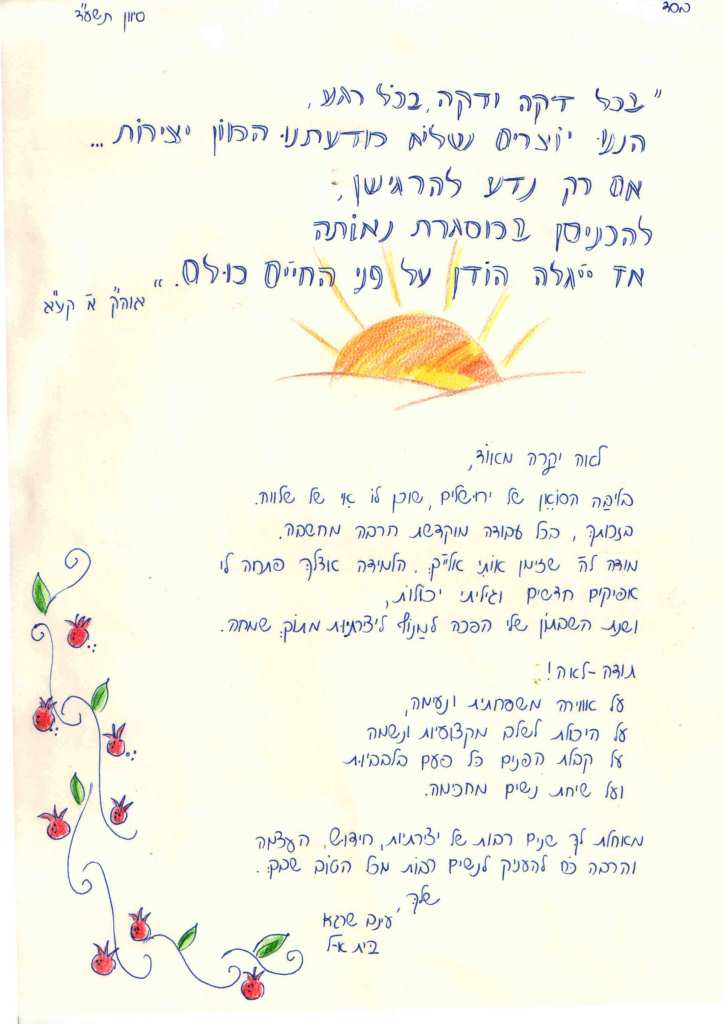 בס"ד
סיוון תשע"ד
"בכל דקה ודקה, בכל רגע,
הננו יוצרים נשלים מודעתנו המון יצירות...
אם רק נדע להרגישן,
להכניסן במסגרת נאותה
אז ייגלה הודן על פני החיים כולם."
אוה"ק א קע"א
לאה יקרה מאוד,
בליבה הסואן של ירושלים, שוכן לו אי של שלווה.
בזכותך, בכל עבודה מוקדשת הרבה מחשבה.
מודה לה' שזימן אותי אלייך. הלמידה אצלך פתחה לי
אפיקים חדשים וגיליתי יכולות,
ושנת השבתון שלי הפכה למנוף ליצרתיות מתוך שמחה.
תודה-לאה!
על אווירה משפחתית ונעימה,
על היכולת לשלב מקצועיות ונשמה
על קבלת הפנים כל פעם בלבביות
ועל שיחת נשים מחכימה.
מאחלת לך שנים רבות של יצירתיות, חידוש, העצמה
והרבה כח להעניק לנשים רבות מכל הטוב שבך.
שלך,
עינב שרגא
בית א-ל